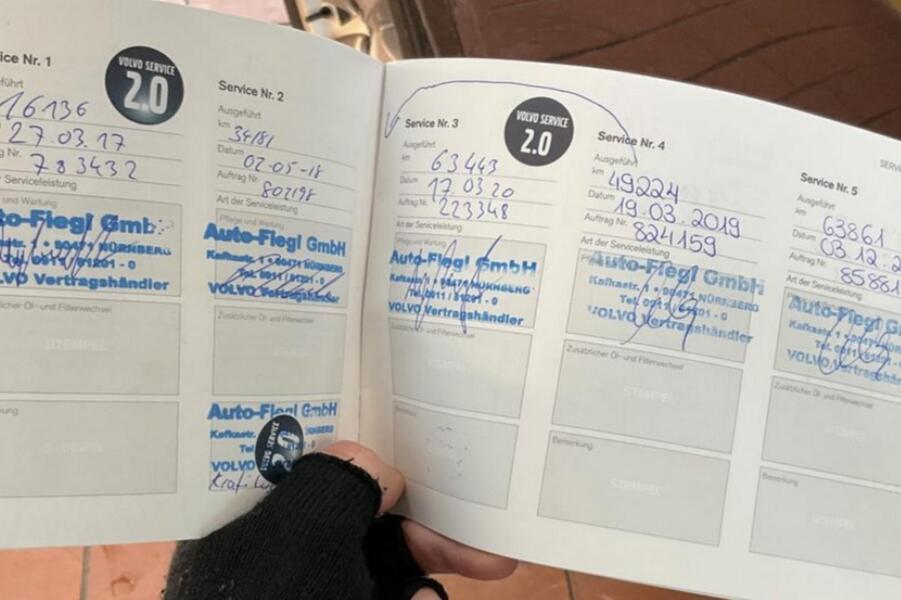 ice Nr. 1
VOLVO SERVICE
2.0
führt
16136
27.03.17
Nr. 783432
der Serviceleistung
und Wartung
to-Fiegl GmbH
1 • 90471 NÜRNBERG
0911 / 81201 - 0
LVO Vertragshändler
Zusätzlicher Öl- und Filterwechsel
STEMPEL
Service Nr. 2
Ausgeführt
km 34181
Datum 02-05-18
Auftrag Nr. 802198
Art der Serviceleistung
Pflege und Wartung
Auto-Fiegl GmbH
Kafkastr. 1 • 90471 NÜRNBERG
Tel. 0911 / 81201 - 0
VOLVO Vertragshändler
Zusätzlicher Öl- und Filterwechsel
Auto-Fiegl GmbH
Kafkastr.
Tel
VOLVO
Service Nr. 3
VOLVO SERVICE
2.0
Ausgeführt
km 63443
Datum 17.03.20
Auftrag Nr. 223348
Art der Serviceleistung
Pflege und Wartung
Auto-Fiegl GmbH
Kafkastr. 1 • 90471 NÜRNBERG
Tel. 0911 / 81201 - 0
VOLVO Vertragshändler
Zusätzlicher Öl- und Filterwechsel
Bemerkung
Service Nr. 4
Ausgeführt
km 49224
Datum 19.03.2019
Auftrag Nr. 824159
Art der Serviceleistung
Auto-Fiegl GmbH
Kafkastr. 1 • 90471 NÜRNBERG
Tel. 0911 / 81201 - 0
VOLVO Vertragshändler
Zusätzlicher Öl- und Filterwechsel
STEMPEL
Bemerkung
STEMPEL
SERV
Service Nr. 5
Ausgeführt
km 63861
Datum 03.12.2
Auftrag Nr. 85881
Art der Serviceleistung
Auto-Fiegl G
Kafkastr. 1 • 90471 NÜRN
Tel. 0911 / 81201 - 0
VOLVO Vertragshänd
Zusätzlicher Öl- und Filterwechsel
Bemerkung